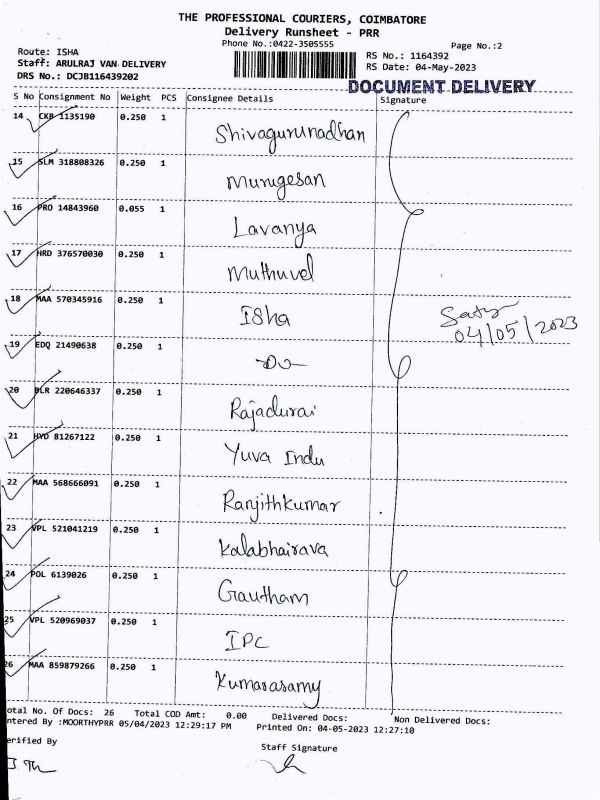 THE PROFESSIONAL COURIERS, COIMBATORE
Delivery Runsheet - PRR
Phone No.:0422-3505555
Page No.:2
Route: ISHA
Staff: ARULRAJ VAN DELIVERY
DRS No.: DCJB116439202
RS No.: 1164392
RS Date: 04-May-2023
DOCUMENT DELIVERY
S No Consignment No Weight PCS Consignee Details Signature
14 CKB 1135190 0.250 1 Shivagurunadhan
15 SLM 318808326 0.250 1 Murugesan
16 PRO 14843960 0.055 1 Lavanya
17 HRD 376570030 0.250 1 Muthuvel
18 MAA 570345916 0.250 1 Isha
04/05/2023
19 EDQ 21490638 0.250 1 -Do-
20 BLR 220646337 0.250 1 Rajadurai
21 HYD 81267122 0.250 1 Yuva Indu
22 MAA 568666091 0.250 1 Ranjithkumar
23 VPL 521041219 0.250 1 Kalabhairava
24 POL 6139026 0.250 1 Gautham
25 VPL 520969037 0.250 1 IPC
26 MAA 859879266 0.250 1 Kumarasamy
otal No. Of Docs: 26 Total COD Amt: 0.00 Delivered Docs: Non Delivered Docs:
ntered By :MOORTHYPRR 05/04/2023 12:29:17 PM Printed On: 04-05-2023 12:27:10
erified By
Staff Signature